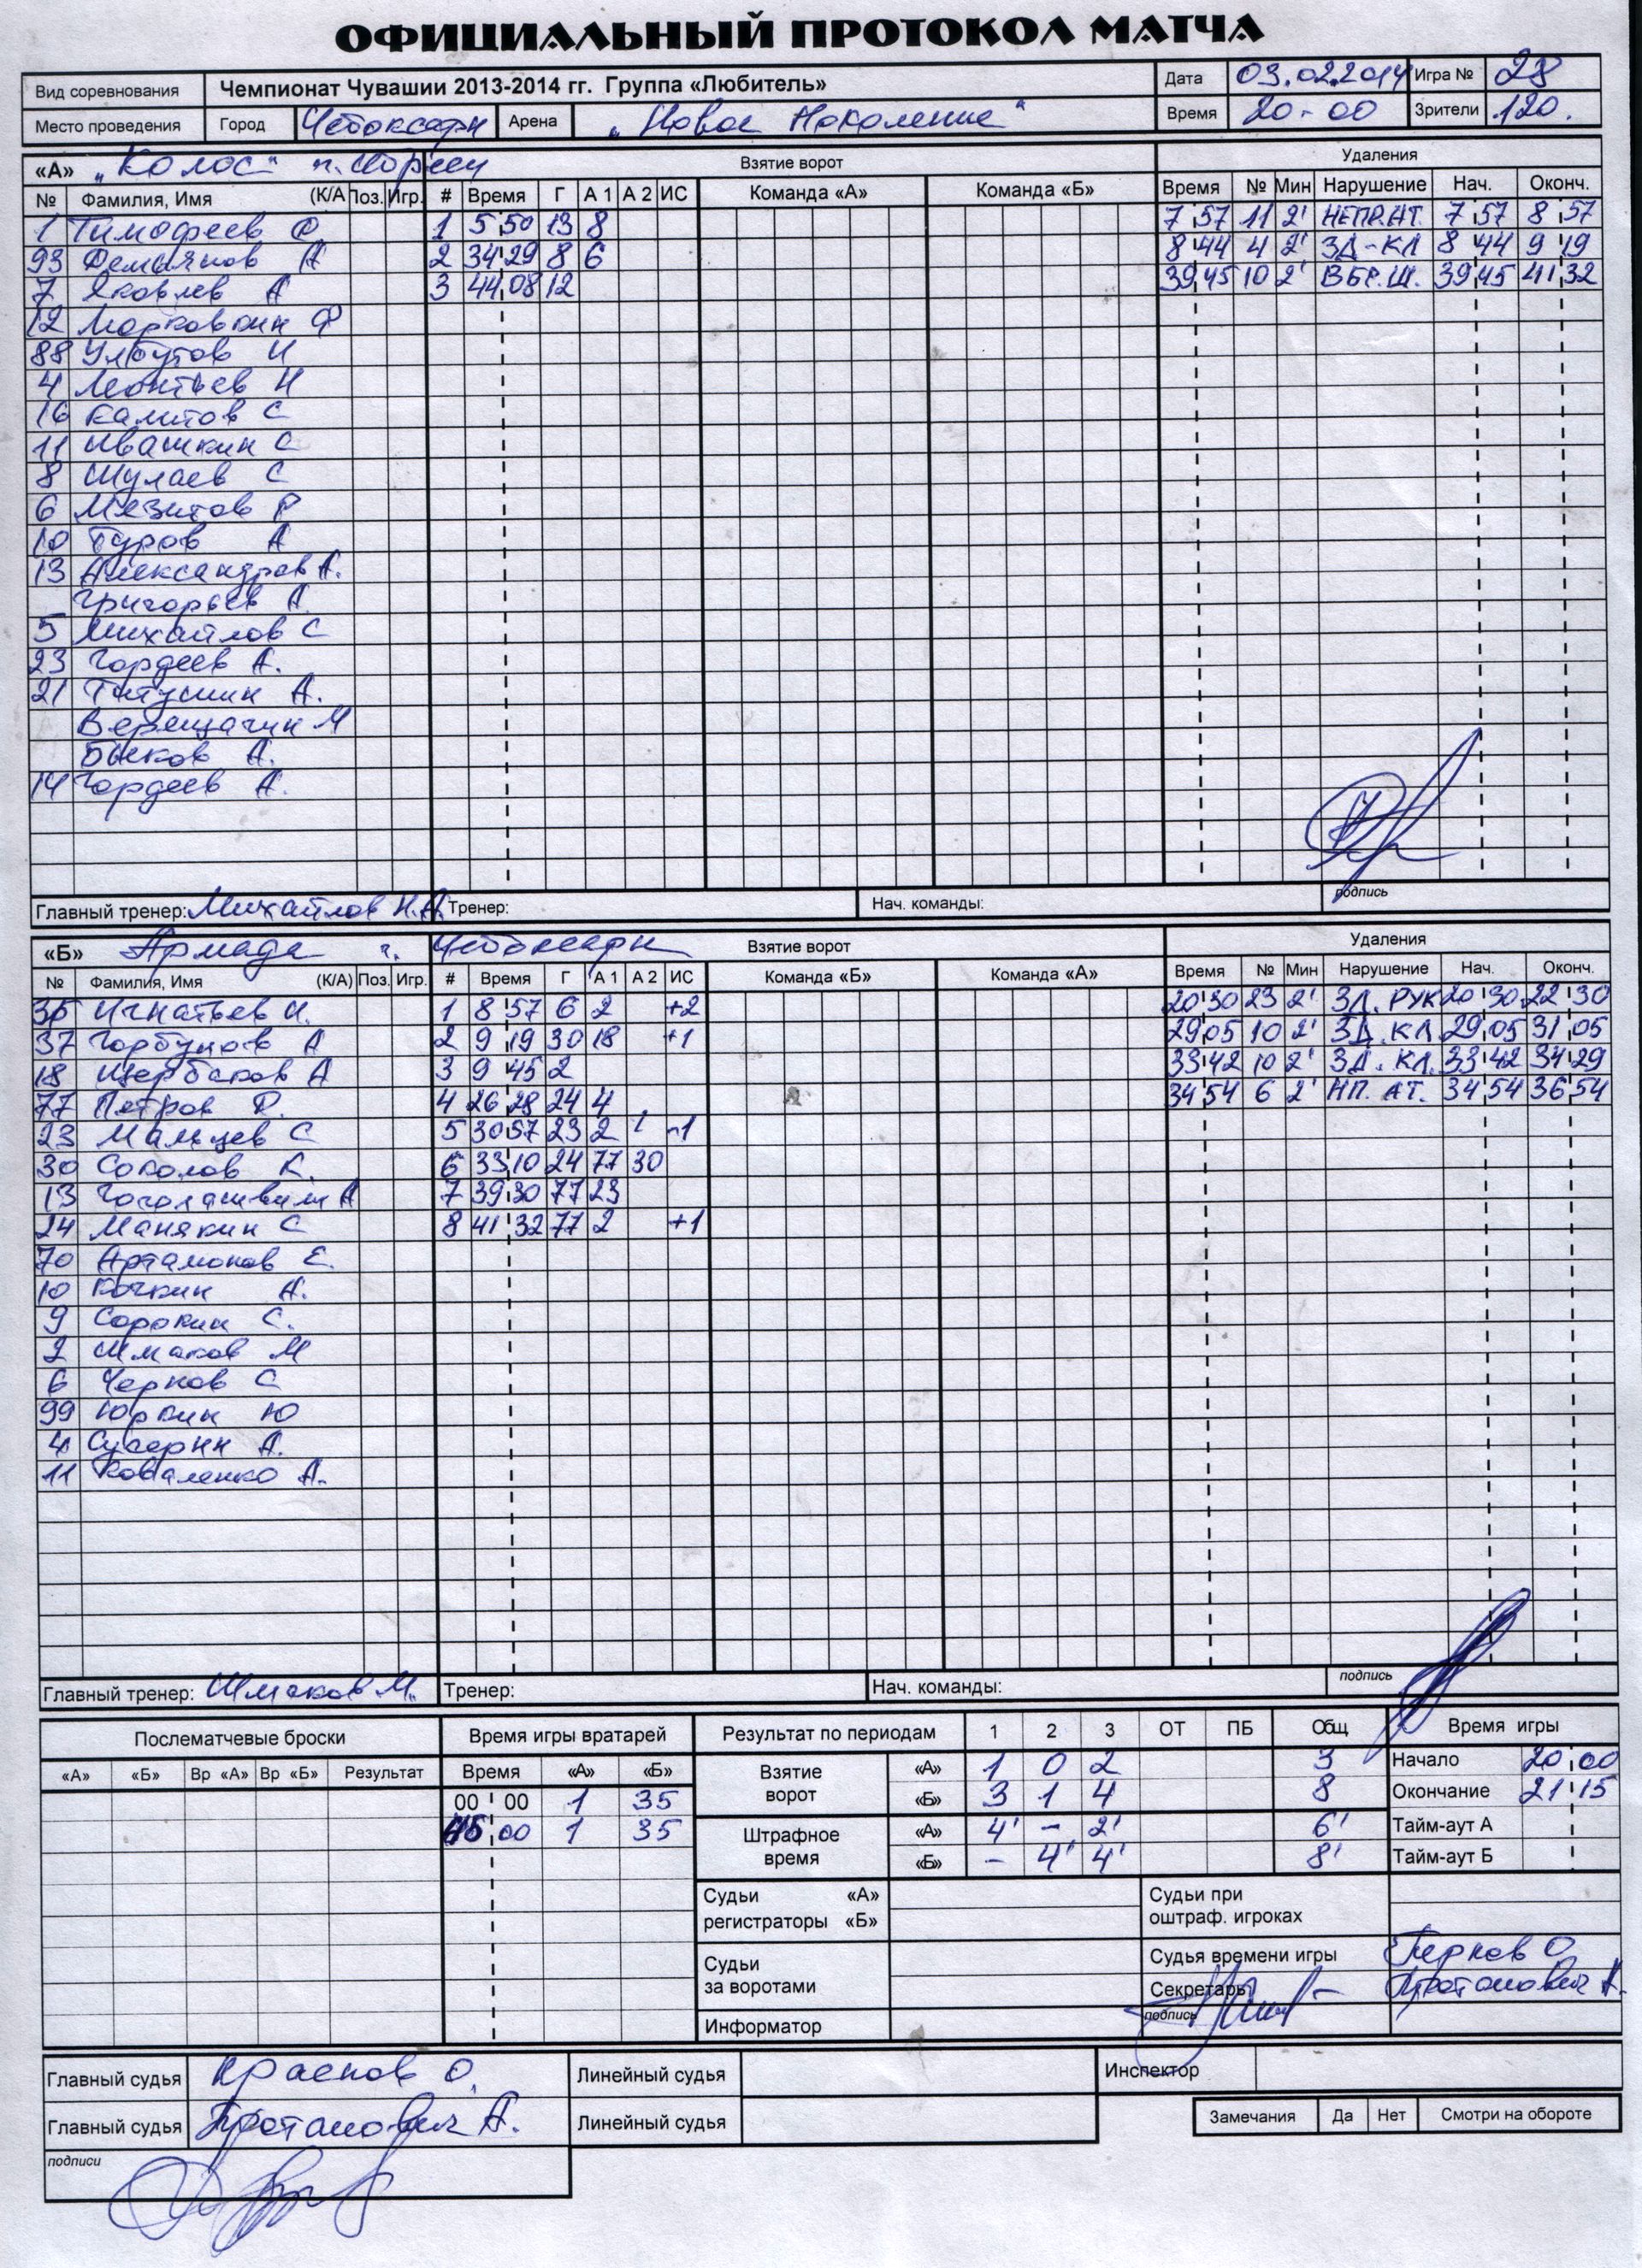 ОФИЦИАЛЬНЫЙ ПРОТОКОЛ МАТЧА
Вид соревнования Чемпионат Чувашии 2013-2014 гг. Группа «Любитель» Дата 03.02.2014 Игра № 28
Место проведения Город Чебоксары Арена „Новое Поколение“ Время 20-00 Зрители 120.
«А» „Колос“ Взятие ворот Удаления
№ Фамилия, Имя (К/А Поз. Игр. # Время Г А 1 А 2 ИС Команда «А» Команда «Б» Время № Мин Нарушение Нач. Оконч.
1 Тимофеев 1 5 50 13 8 7 57 11 2' НЕПР.АТ. 7 57 8 57
93 Демьянов А 2 34 29 8 6 8 44 4 2' ЗД-КЛ 8 44 9 19
7 Яковлев А 3 44 08 12 39 45 10 2' ВБР.Ш. 39 45 41 32
12 Морковкин Ф
88 Улбутов И
4 Леонтьев Н
16 Калитов С
11 Ивашкин С
8 Шулаев С
6 Мязитов Р
10 Туров А
13 Александров А.
Григорьев А.
5 Михайлов С
23 Гордеев А.
21 Татушин А.
Верещагин М
Быков А.
14 Гордеев А.
Главный тренер: Михайлов Н.А. Тренер: Нач. команды: подпись
«Б» Армада г. Чебоксары Взятие ворот Удаления
№ Фамилия, Имя (К/А) Поз. Игр. # Время Г А 1 А 2 ИС Команда «Б» Команда «А» Время № Мин Нарушение Нач. Оконч.
35 Игнатьев И. 1 8 57 6 2 +2 20 30 23 2' ЗД. РУК 20 30 22 30
37 Горбунов А 2 9 19 30 18 +1 29 05 10 2' ЗД. КЛ. 29 05 31 05
18 Щербаков А 3 9 45 2 33 42 10 2' ЗД. КЛ. 33 42 34 29
77 Петров Р. 4 26 28 24 4 34 54 6 2' НП. АТ. 34 54 36 54
23 Мальцев С 5 30 57 23 2 -1
30 Соколов К. 6 33 10 24 77 30
13 Гоголашвили А 7 39 30 77 23
24 Манякин С 8 41 32 77 2 +1
70 Артамонов Е.
10 Кочкин А.
9 Сорокин С.
2 Шмаков М
6 Чернов С
99 Юркин Ю
4 Сугерин А.
11 Коваленко А.
Главный тренер: Шмаков М. Тренер: Нач. команды: подпись
Послематчевые броски Время игры вратарей Результат по периодам 1 2 3 ОТ ПБ Общ Время игры
«А» «Б» Вр «А» Вр «Б» Результат Время «А» «Б» Взятие ворот «А» 1 0 2 3 Начало 20 00
00 00 1 35 «Б» 3 1 4 8 Окончание 21 15
45 00 1 35 Штрафное время «А» 4' - 2' 6' Тайм-аут А
«Б» - 4' 4' 8' Тайм-аут Б
Судьи регистраторы «А» «Б» Судьи при оштраф. игроках
Судьи за воротами Судья времени игры О
Секретарь Протанович А.
Информатор подпись
Главный судья Краснов О. Линейный судья Инспектор
Главный судья Протанович А. Линейный судья Замечания Да Нет Смотри на обороте
подписи